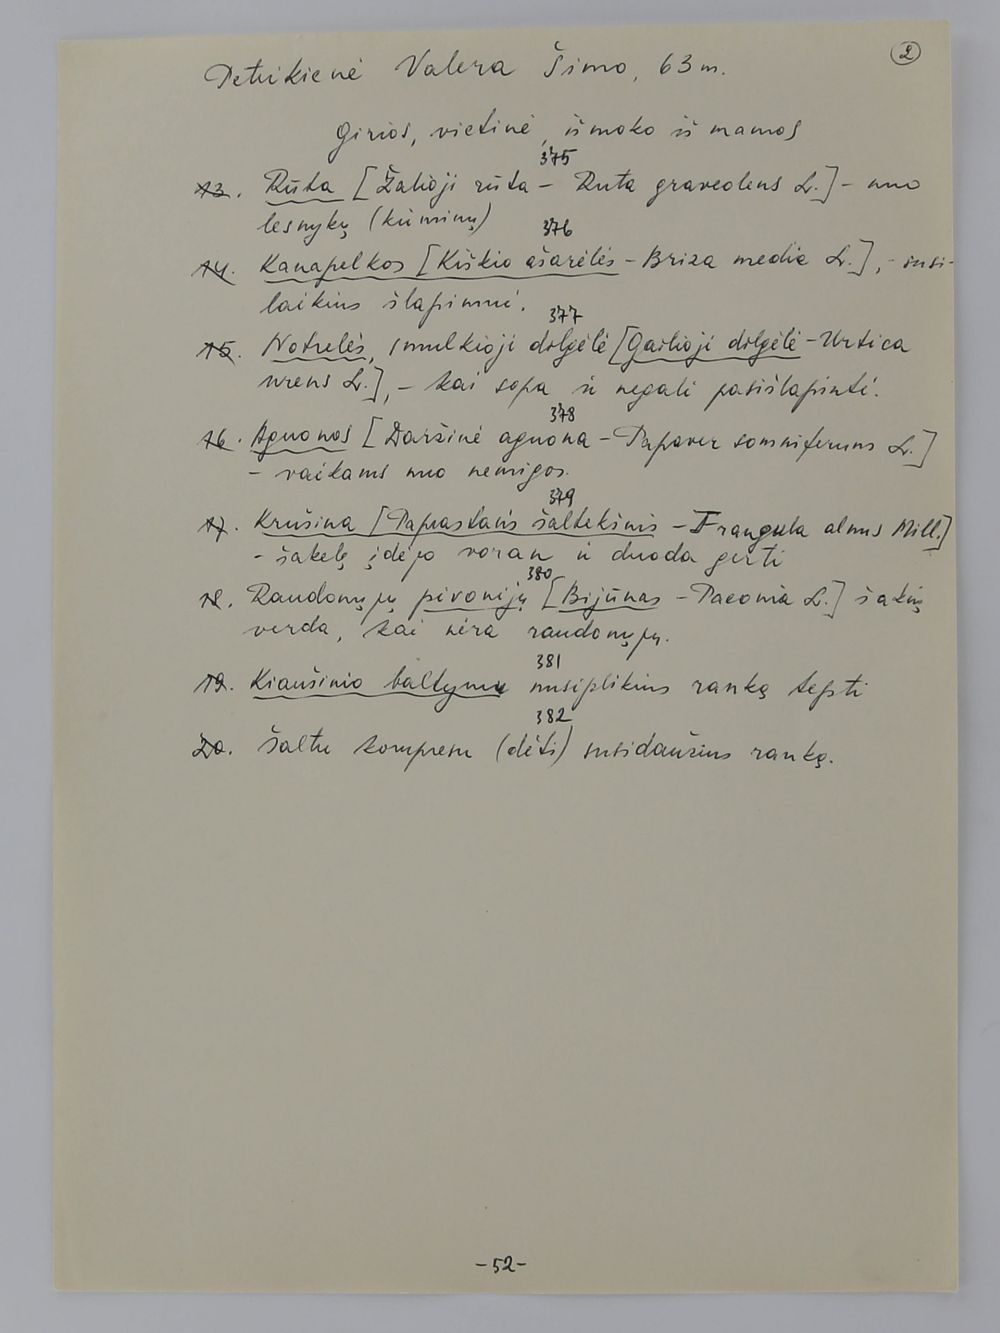 2
Petrikienė Valera Šimo, 63 m.
Girios, vietinė, išmoko iš mamos
375
13. Rūta [Žalioji rūta - Ruta graveolens L.] - nuo
lesnykų (kūminų)
376
14. Kanapelkos [Kiškio ašarėlės - Briza media L.], - susi-
laikius šlapimui.
377
15. Notrelės, smulkioji dilgėlė [Gailioji dilgėlė - Urtica
urens L.], - kai sopa ir negali pasišlapinti.
378
16. Aguonos [Daržinė aguona - Papaver somniferum L.]
- vaikams nuo nemigos.
379
17. Krušina [Paprastasis šaltekšnis - Frangula alnus Mill.]
- šakelę įdėjo voran ir duoda gerti
380
18. Raudonųjų pivonijų [Bijūnas - Paeonia L.] šaknį
verda, kai nėra raudonųjų.
381
19. Kiaušinio baltymu nusiplikius ranką tepti
382
20. Šaltu kompresu (dėti) susidaužius ranką.
-52-